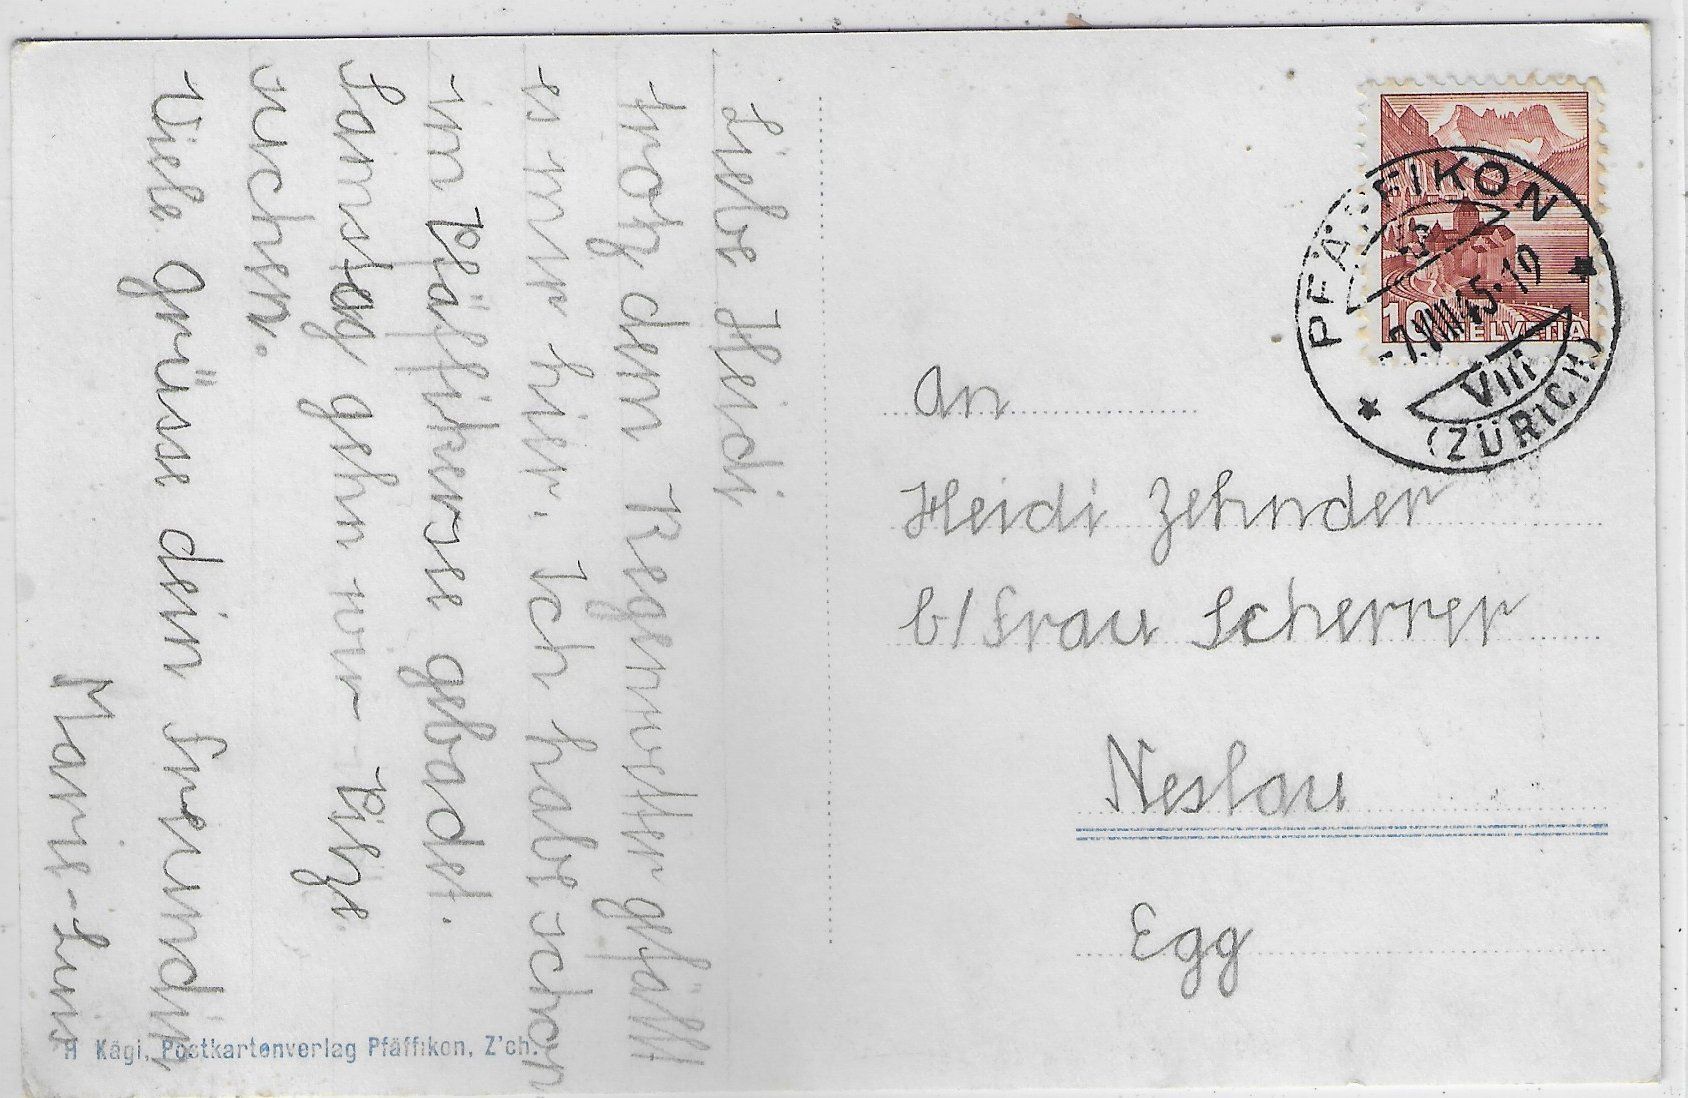 Liebe Heidi
trotz dem Regenwetter gefällt
es mir hier. Ich habe schon
im Pfäffikersee gebadet.
Samstag gehn wir Pilze
suchen.
Viele Grüsse dein Freundin
Marie-Luis
H Kägi, Postkartenverlag Pfäffikon, Z'ch.
PFÄFFIKON
-7.VIII45-19
VIII
(ZÜRICH)
10 HELVETIA
An
Heidi Zehnder
b/Frau Scherrer
Neslau
Egg